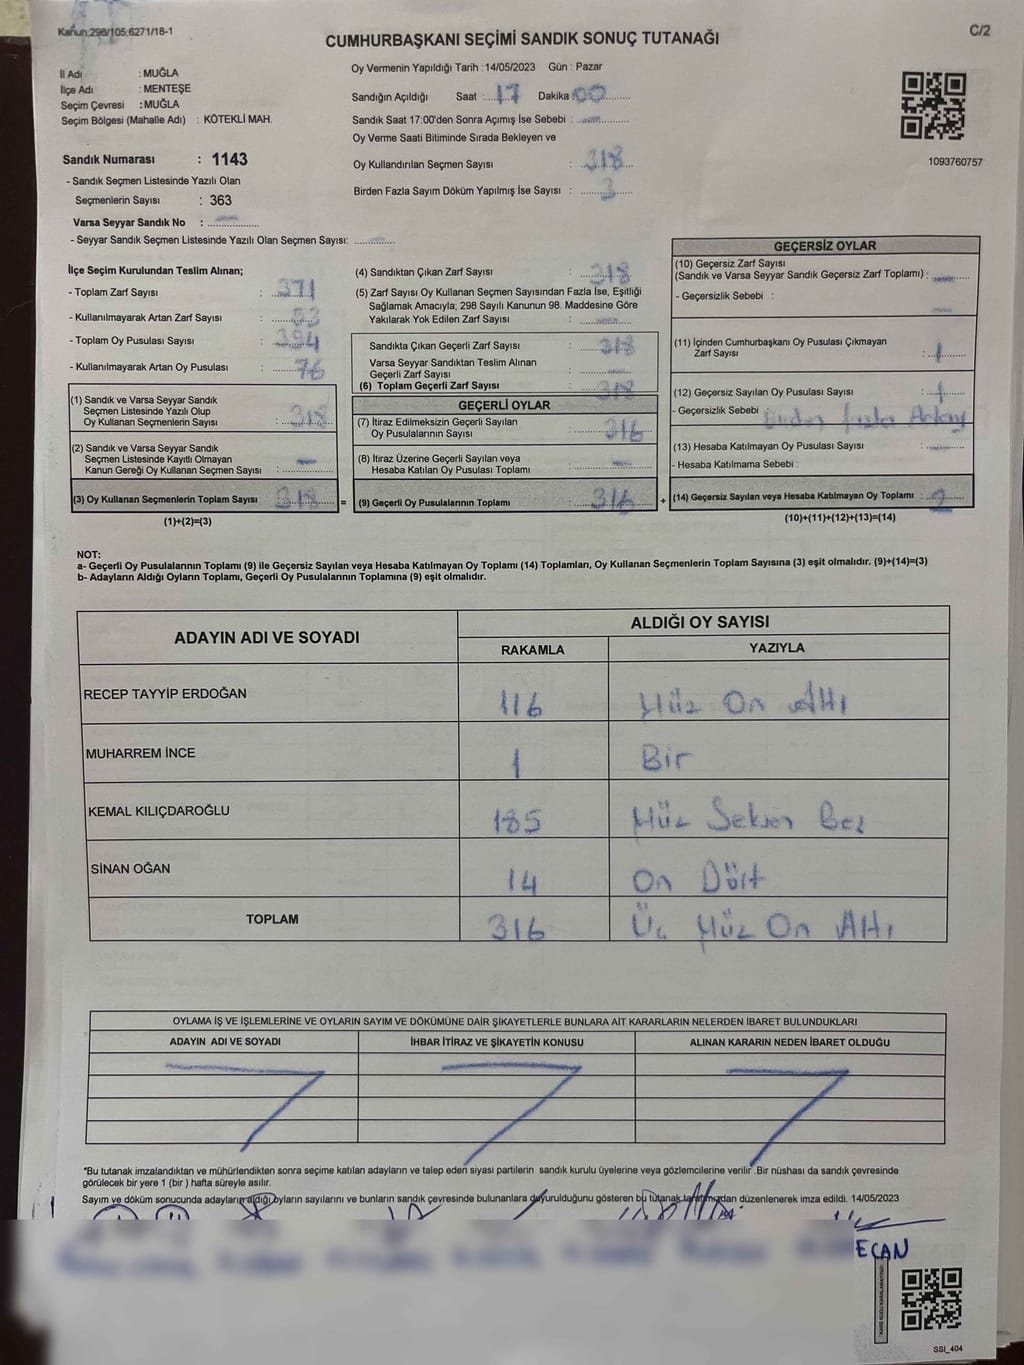 Kanun:298/105;6271/18-1
C/2
CUMHURBAŞKANI SEÇİMİ SANDIK SONUÇ TUTANAĞI
İl Adı : MUĞLA
İlçe Adı : MENTEŞE
Seçim Çevresi : MUĞLA
Seçim Bölgesi (Mahalle Adı) : KÖTEKLİ MAH.
Sandık Numarası : 1143
- Sandık Seçmen Listesinde Yazılı Olan
Seçmenlerin Sayısı : 363
Varsa Seyyar Sandık No :
- Seyyar Sandık Seçmen Listesinde Yazılı Olan Seçmen Sayısı:
Oy Vermenin Yapıldığı Tarih : 14/05/2023 Gün : Pazar
Sandığın Açıldığı Saat : 17 Dakika 00
Sandık Saat 17:00'den Sonra Açımış İse Sebebi :
Oy Verme Saati Bitiminde Sırada Bekleyen ve
Oy Kullandırılan Seçmen Sayısı : 318
Birden Fazla Sayım Döküm Yapılmış İse Sayısı : 3
1093760757
İlçe Seçim Kurulundan Teslim Alınan;
- Toplam Zarf Sayısı : 371
- Kullanılmayarak Artan Zarf Sayısı : 53
- Toplam Oy Pusulası Sayısı : 394
- Kullanılmayarak Artan Oy Pusulası : 76
(1) Sandık ve Varsa Seyyar Sandık
Seçmen Listesinde Yazılı Olup
Oy Kullanan Seçmenlerin Sayısı : 318
(2) Sandık ve Varsa Seyyar Sandık
Seçmen Listesinde Kayıtlı Olmayan
Kanun Gereği Oy Kullanan Seçmen Sayısı :
(3) Oy Kullanan Seçmenlerin Toplam Sayısı 318 =
(1)+(2)=(3)
(4) Sandıktan Çıkan Zarf Sayısı : 318
(5) Zarf Sayısı Oy Kullanan Seçmen Sayısından Fazla İse, Eşitliği
Sağlamak Amacıyla; 298 Sayılı Kanunun 98. Maddesine Göre
Yakılarak Yok Edilen Zarf Sayısı :
Sandıkta Çıkan Geçerli Zarf Sayısı : 318
Varsa Seyyar Sandıktan Teslim Alınan
Geçerli Zarf Sayısı :
(6) Toplam Geçerli Zarf Sayısı : 318
GEÇERLİ OYLAR
(7) İtiraz Edilmeksizin Geçerli Sayılan
Oy Pusulalarının Sayısı : 316
(8) İtiraz Üzerine Geçerli Sayılan veya
Hesaba Katılan Oy Pusulası Toplamı :
(9) Geçerli Oy Pusulalarının Toplamı : 316 +
GEÇERSİZ OYLAR
(10) Geçersiz Zarf Sayısı
(Sandık ve Varsa Seyyar Sandık Geçersiz Zarf Toplamı) :
- Geçersizlik Sebebi :
(11) İçinden Cumhurbaşkanı Oy Pusulası Çıkmayan
Zarf Sayısı : 1
(12) Geçersiz Sayılan Oy Pusulası Sayısı : 1
- Geçersizlik Sebebi :
(13) Hesaba Katılmayan Oy Pusulası Sayısı :
- Hesaba Katılmama Sebebi :
(14) Geçersiz Sayılan veya Hesaba Katılmayan Oy Toplamı : 2
(10)+(11)+(12)+(13)=(14)
NOT:
a- Geçerli Oy Pusulalarının Toplamı (9) ile Geçersiz Sayılan veya Hesaba Katılmayan Oy Toplamı (14) Toplamları, Oy Kullanan Seçmenlerin Toplam Sayısına (3) eşit olmalıdır. (9)+(14)=(3)
b- Adayların Aldığı Oyların Toplamı, Geçerli Oy Pusulalarının Toplamına (9) eşit olmalıdır.
ADAYIN ADI VE SOYADI
ALDIĞI OY SAYISI
RAKAMLA YAZIYLA
RECEP TAYYİP ERDOĞAN 116 Yüz On Altı
MUHARREM İNCE 1 Bir
KEMAL KILIÇDAROĞLU 185 Yüz Seksen Beş
SİNAN OĞAN 14 On Dört
TOPLAM 316 Üç Yüz On Altı
OYLAMA İŞ VE İŞLEMLERİNE VE OYLARIN SAYIM VE DÖKÜMÜNE DAİR ŞİKAYETLERLE BUNLARA AİT KARARLARIN NELERDEN İBARET BULUNDUKLARI
ADAYIN ADI VE SOYADI İHBAR İTİRAZ VE ŞİKAYETİN KONUSU ALINAN KARARIN NEDEN İBARET OLDUĞU
*Bu tutanak imzalandıktan ve mühürlendikten sonra seçime katılan adayların ve talep eden siyasi partilerin sandık kurulu üyelerine veya gözlemcilerine verilir. Bir nüshası da sandık çevresinde
görülecek bir yere 1 (bir) hafta süreyle asılır.
Sayım ve döküm sonucunda adayların aldığı oyların sayılarını ve bunların sandık çevresinde bulunanlara duyurulduğunu gösteren bu tutanak tarafımızdan düzenlenerek imza edildi. 14/05/2023
ECAN
SSI_404